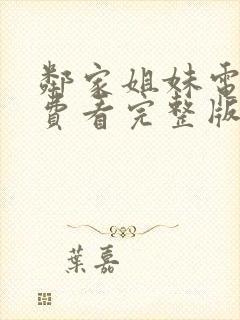 鄰家姐妹電
費看完整版
葉嘉